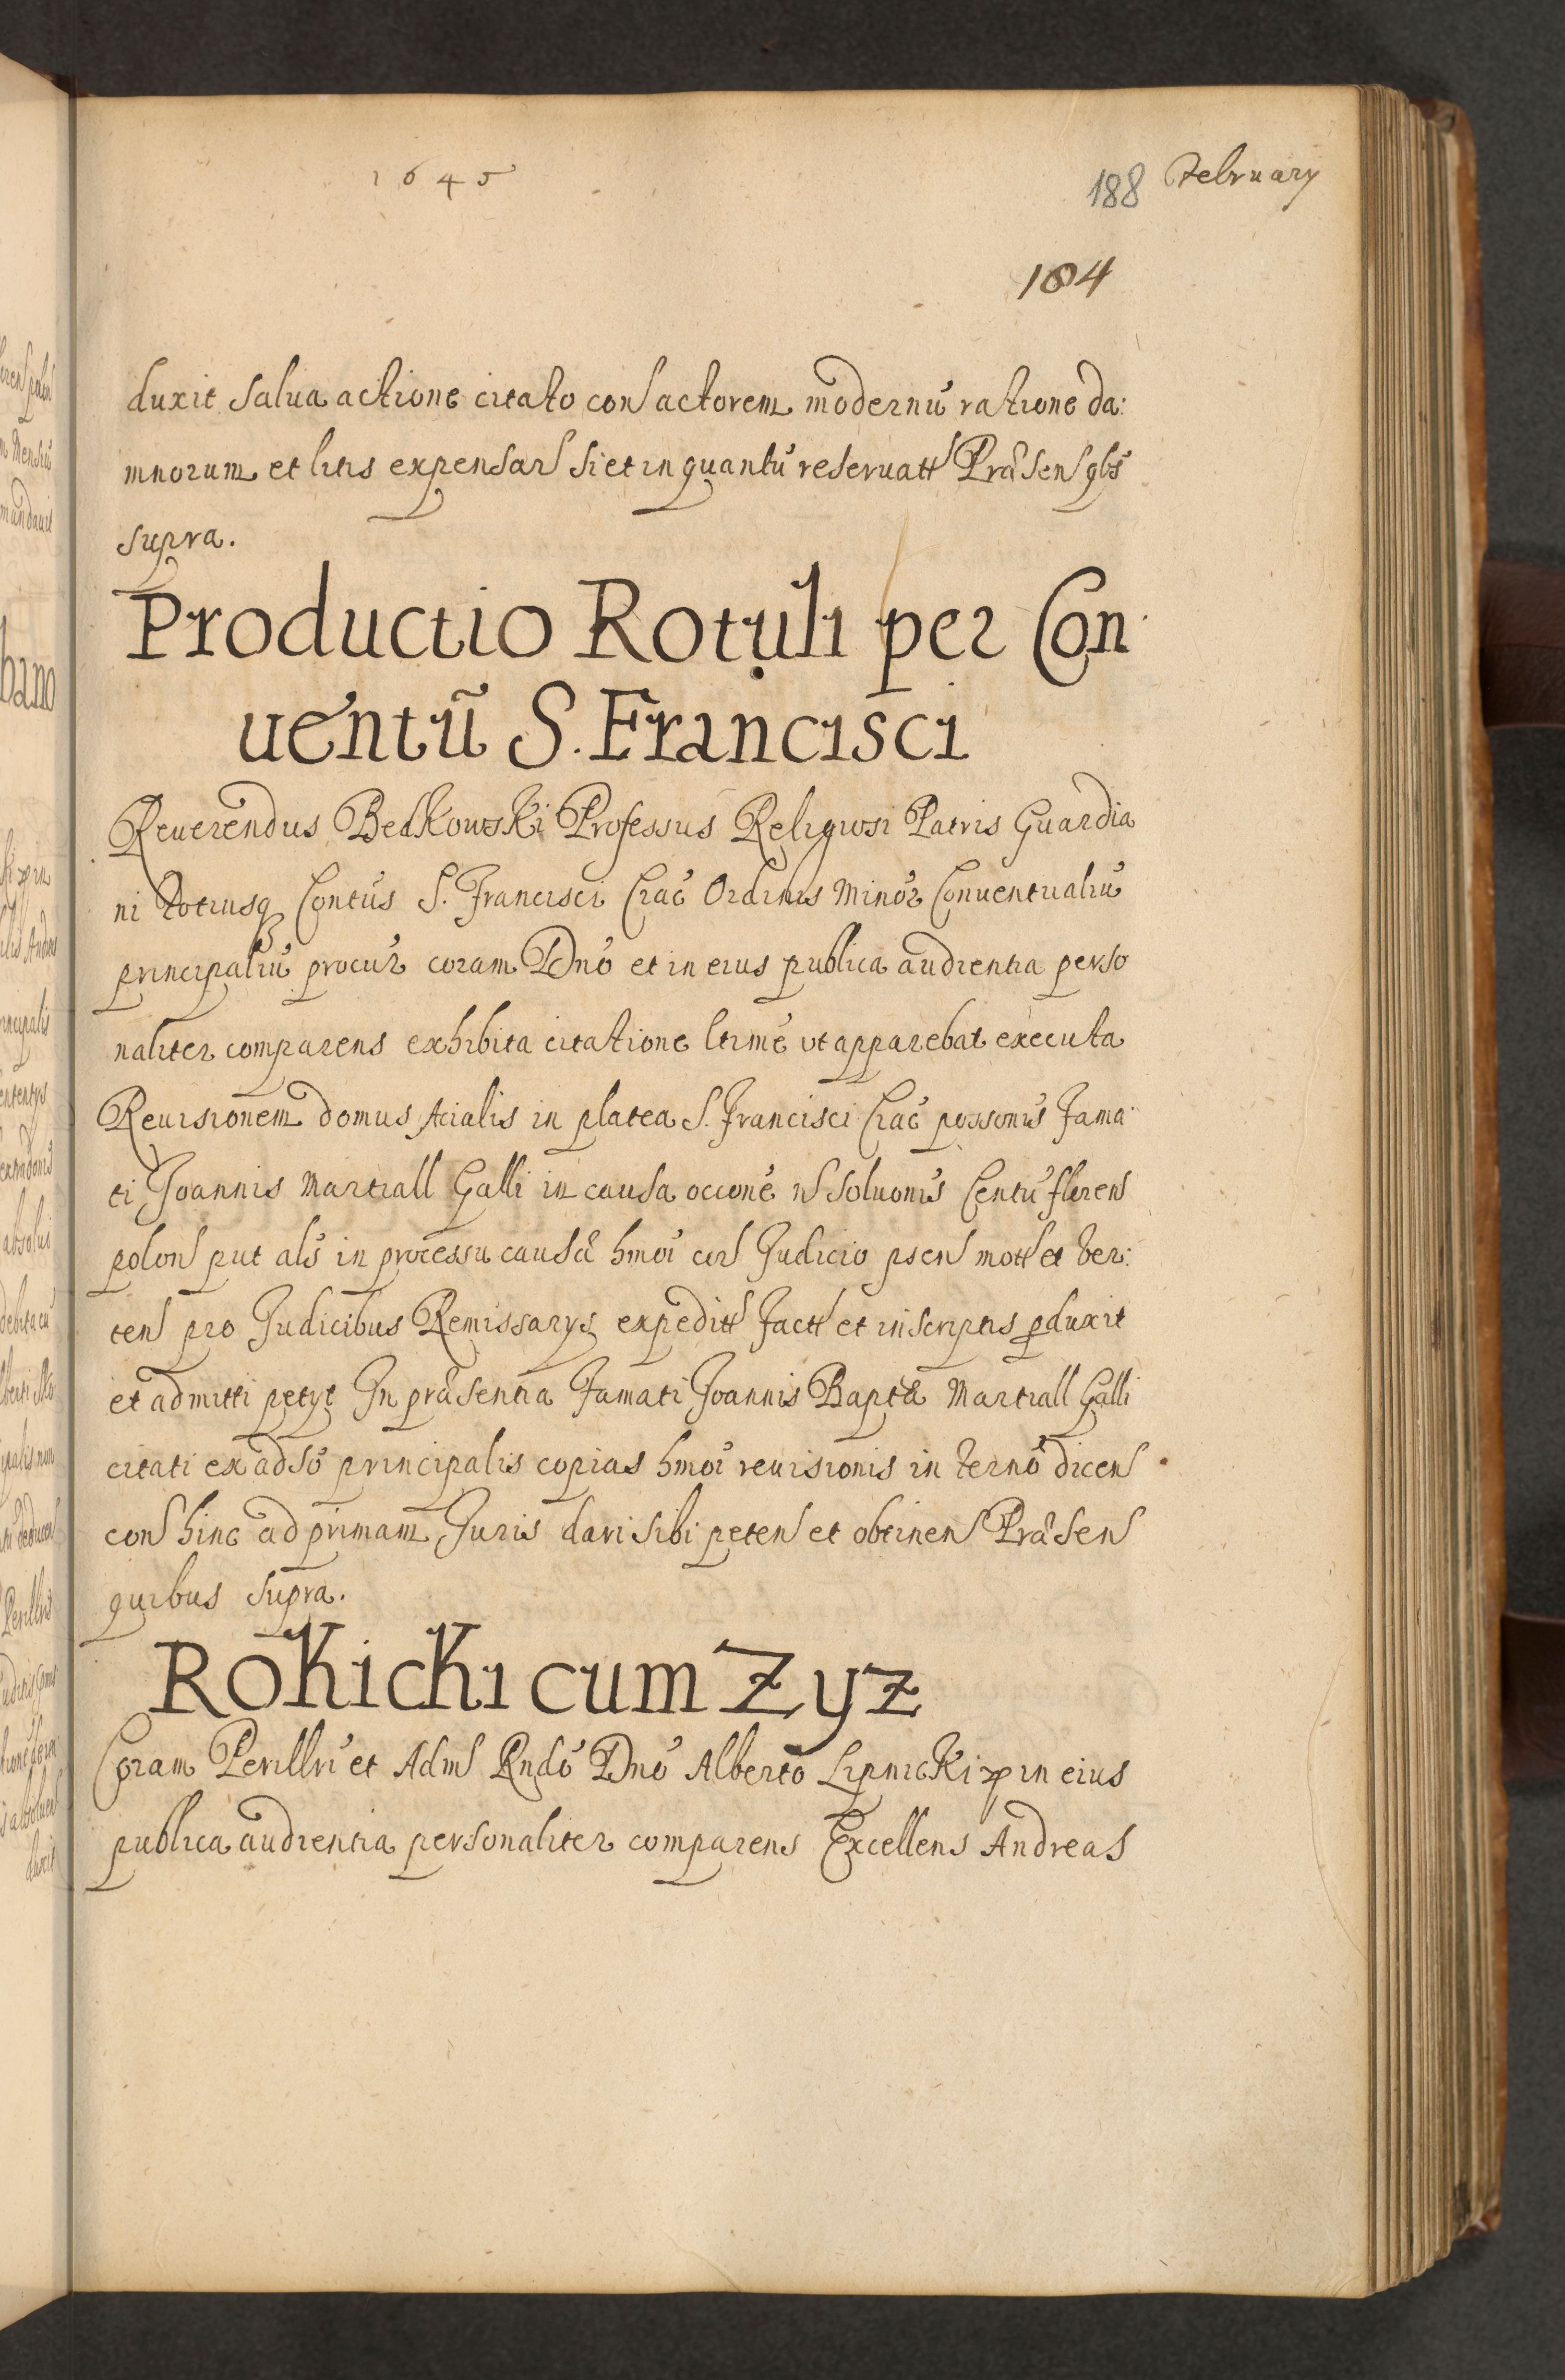 1645
188 February
184
duxit salua actione citato cons actorem modernũ ratione da:
mnorum et litis expensars si et in quantũ reservatt Præsens qbs
supra.
Productio Rotuli per Con
uentũ S. Francisci
Reuerendus Bedkowski Professus Religiosi Patris Guardia
ni totiusq Contus S. Francisci Crac Ordinis Minor Conuentualiũ
principaliũ procur coram Dno et in eius publica audientia perso
naliter comparens exhibita citatione ltime ut apparebat executa
Reuisionem domus Acialis in platea S. Francisci Crac possonis Fama
ti Joannis Martiall Galli in causa occone ns soluonis Centũ florens
polons put als in processu causæ hmoi cors Judicio psens mott et ver:
tens pro Judicibus Remissarys expeditt Factt et in scriptis pduxit
et admitti petyt In præsentia Famati Joannis Baptæ Martiall Galli
citati ex adso principalis copias hmoi reuisionis in terno dicens
cons hinc ad primam Juris dari sibi petens et obtinens Præsens
quibus supra.
Rokicki cum Zyz
Coram Perillri et Adms Rndo Dno Alberto Lipnicki xp in eius
publica audientia personaliter comparens Excellens Andreas